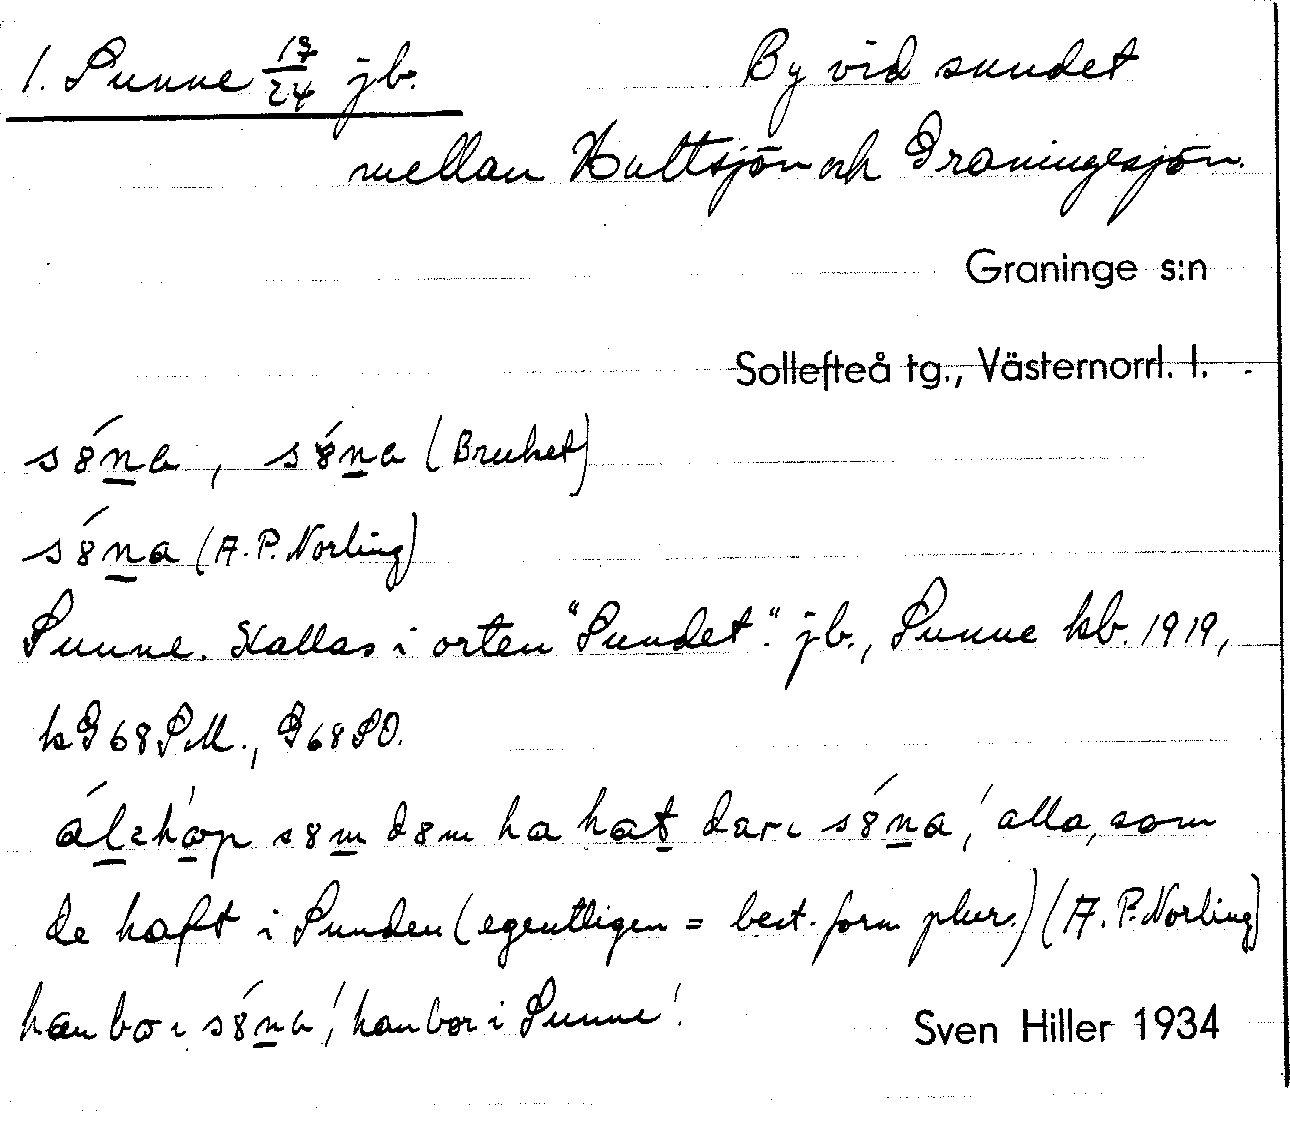 1. Sunne 17/24 jb. By vid sundet
mellan Hultsjön och Graningesjön.
Graninge s:n
Sollefteå tg., Västernorrl. l.
s8́na, s8́na (Bruket)
s8́na (A. P. Norling)
Sunne. Kallas i orten "Sundet". jb., Sunne kb. 1919,
kG 68 SM., G 68 SO.
s8m d8m ha hat darı s8́na, ' alla, som
de haft i Sunden (egentligen = best. form plur.) (A. P. Norling)
han bor ı s8́na, ' han bor i Sunne'.
Sven Hiller 1934